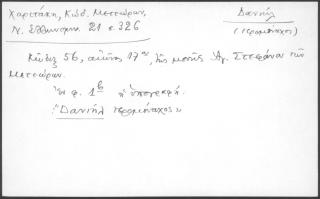 Χαριτάκη, Κώδ. Μετεώρων,
Ν. Ελληνομν. 21 σ. 326
Δανιήλ
(ιερομόναχος)
Κώδιξ 56, αἰῶνος 17ου, τῆς μονῆς Ἁγ. Στεφάνου τῶν
Μετεώρων.
Ἐν φ. 1β ἡ ὑπογραφή.
"Δανιήλ ιερομόναχος"